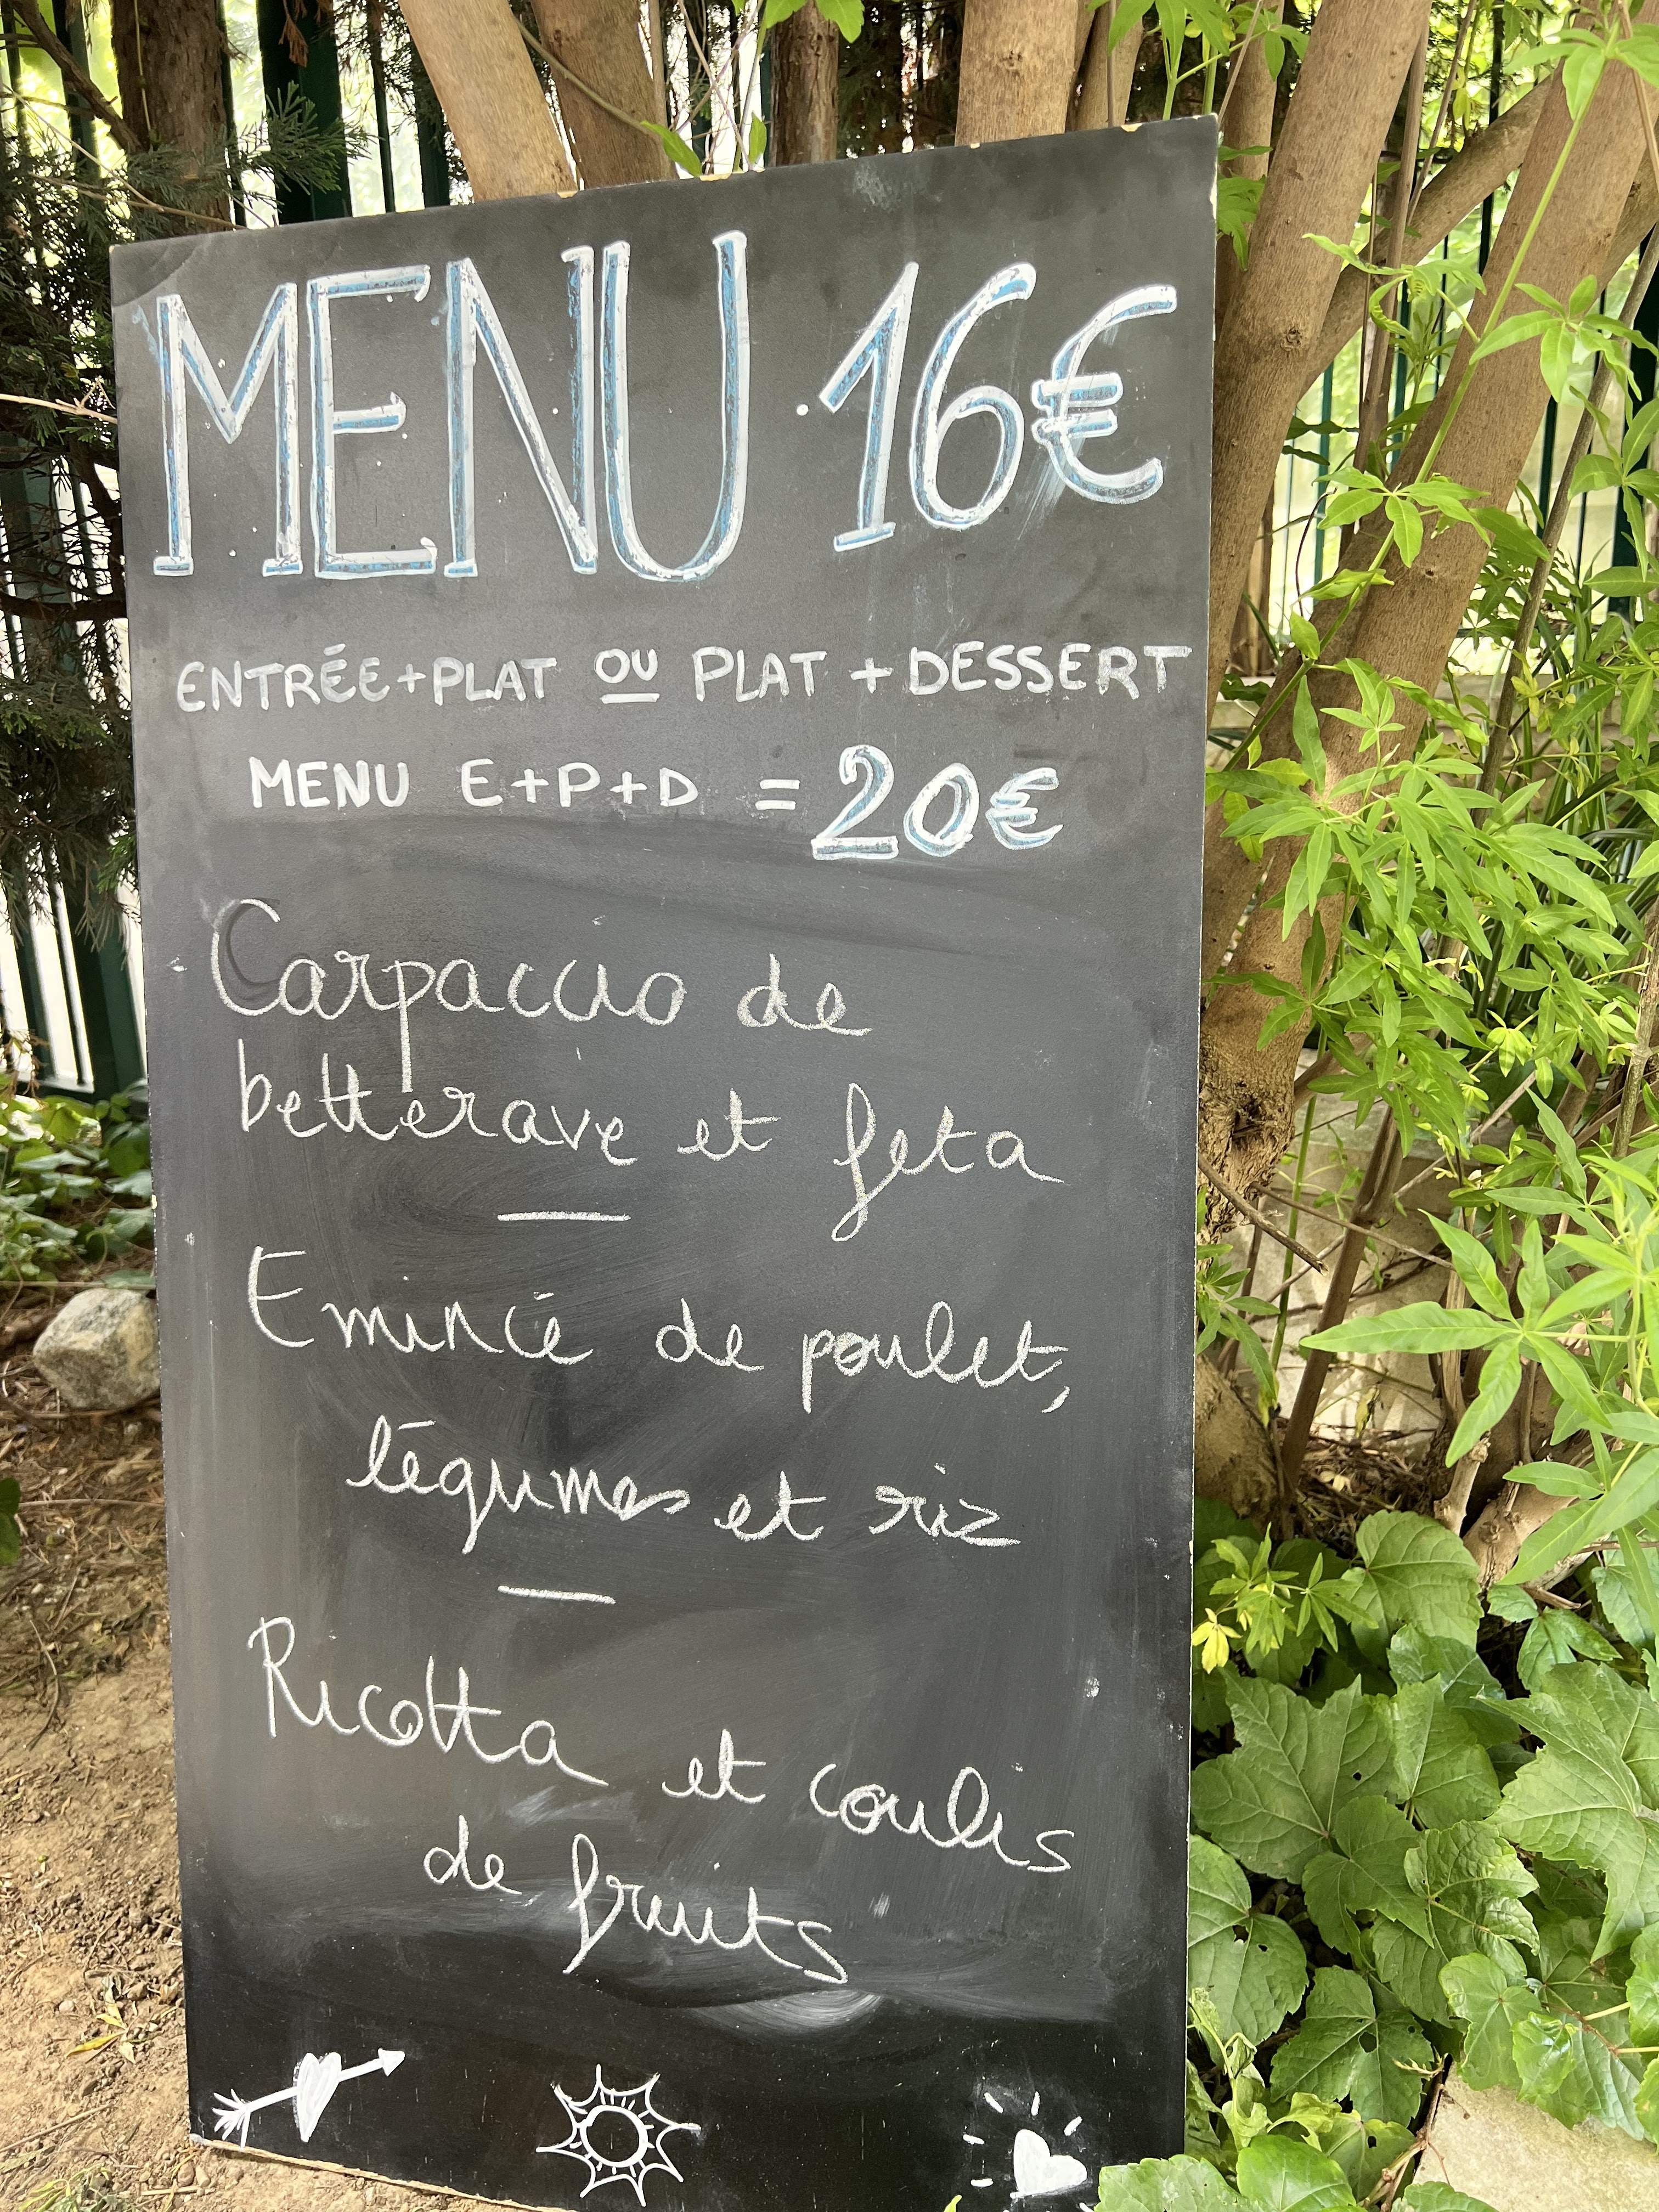 MENU 16€
ENTRÉE+PLAT OU PLAT + DESSERT
MENU E+P+D = 20€
Carpaccio de
betterave et feta
Emincé de poulet,
légumes et riz
Ricotta et coulis
de fruits